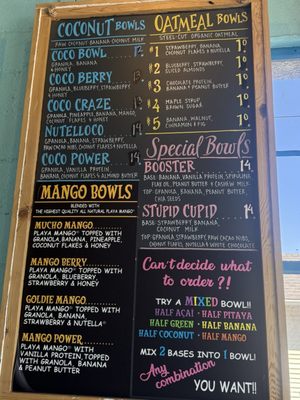 COCONUT BOWLS
RAW COCONUT, BANANA, COCONUT MILK
COCO BOWL 12
GRANOLA, BANANA
& HONEY
COCO BERRY 13
GRANOLA, BLUEBERRY,
STRAWBERRY & HONEY
COCO CRAZE 13
GRANOLA, PINEAPPLE, BANANA, MANGO,
COCONUT FLAKES & HONEY
NUTELLOCO 14
GRANOLA, BANANA, STRAWBERRY,
RAW CACAO NIBS, COCONUT FLAKES & NUTELLA
COCO POWER 14
GRANOLA, VANILLA PROTEIN
BANANA, COCONUT FLAKES & ALMOND BUTTER
MANGO BOWLS
BLENDED WITH
THE HIGHEST QUALITY ALL NATURAL PLAYA MANGO
MUCHO MANGO
PLAYA MANGO TOPPED WITH
GRANOLA, BANANA, PINEAPPLE,
COCONUT FLAKES & HONEY
MANGO BERRY
PLAYA MANGO TOPPED WITH
GRANOLA, BLUEBERRY,
STRAWBERRY & HONEY
GOLDIE MANGO
PLAYA MANGO TOPPED WITH
GRANOLA, BANANA,
STRAWBERRY & NUTELLA
MANGO POWER
PLAYA MANGO WITH
VANILLA PROTEIN, TOPPED
WITH GRANOLA, BANANA
& PEANUT BUTTER
OATMEAL BOWLS
STEEL-CUT ORGANIC OATMEAL
#1 STRAWBERRY, BANANA,
COCONUT FLAKES & NUTELLA
#2 BLUEBERRY, STRAWBERRY,
SLICED ALMONDS
#3 CHOCOLATE PROTEIN, BANANA
& PEANUT BUTTER
#4 MAPLE SYRUP,
BROWN SUGAR
#5 BANANA, WALNUT,
CINNAMON & FIG
Special Bowls
BOOSTER 14
BASE: BANANA, VANILLA PROTEIN, SPIRULINA
FLAX OIL, PEANUT BUTTER & CASHEW MILK
TOP: GRANOLA, BANANA, PEANUT BUTTER,
CHIA SEEDS
STUPID CUPID 14
BASE: STRAWBERRY, BANANA,
COCONUT MILK
TOP: GRANOLA, STRAWBERRY, RAW CACAO NIBS,
COCONUT FLAKES, NUTELLA & WHITE CHOCOLATE
Can't decide what
to order?!
TRY A MIXED BOWL!!
HALF ACAI · HALF PITAYA
HALF GREEN · HALF BANANA
HALF COCONUT · HALF MANGO
MIX 2 BASES INTO 1 BOWL!
Any
combination
YOU WANT!!